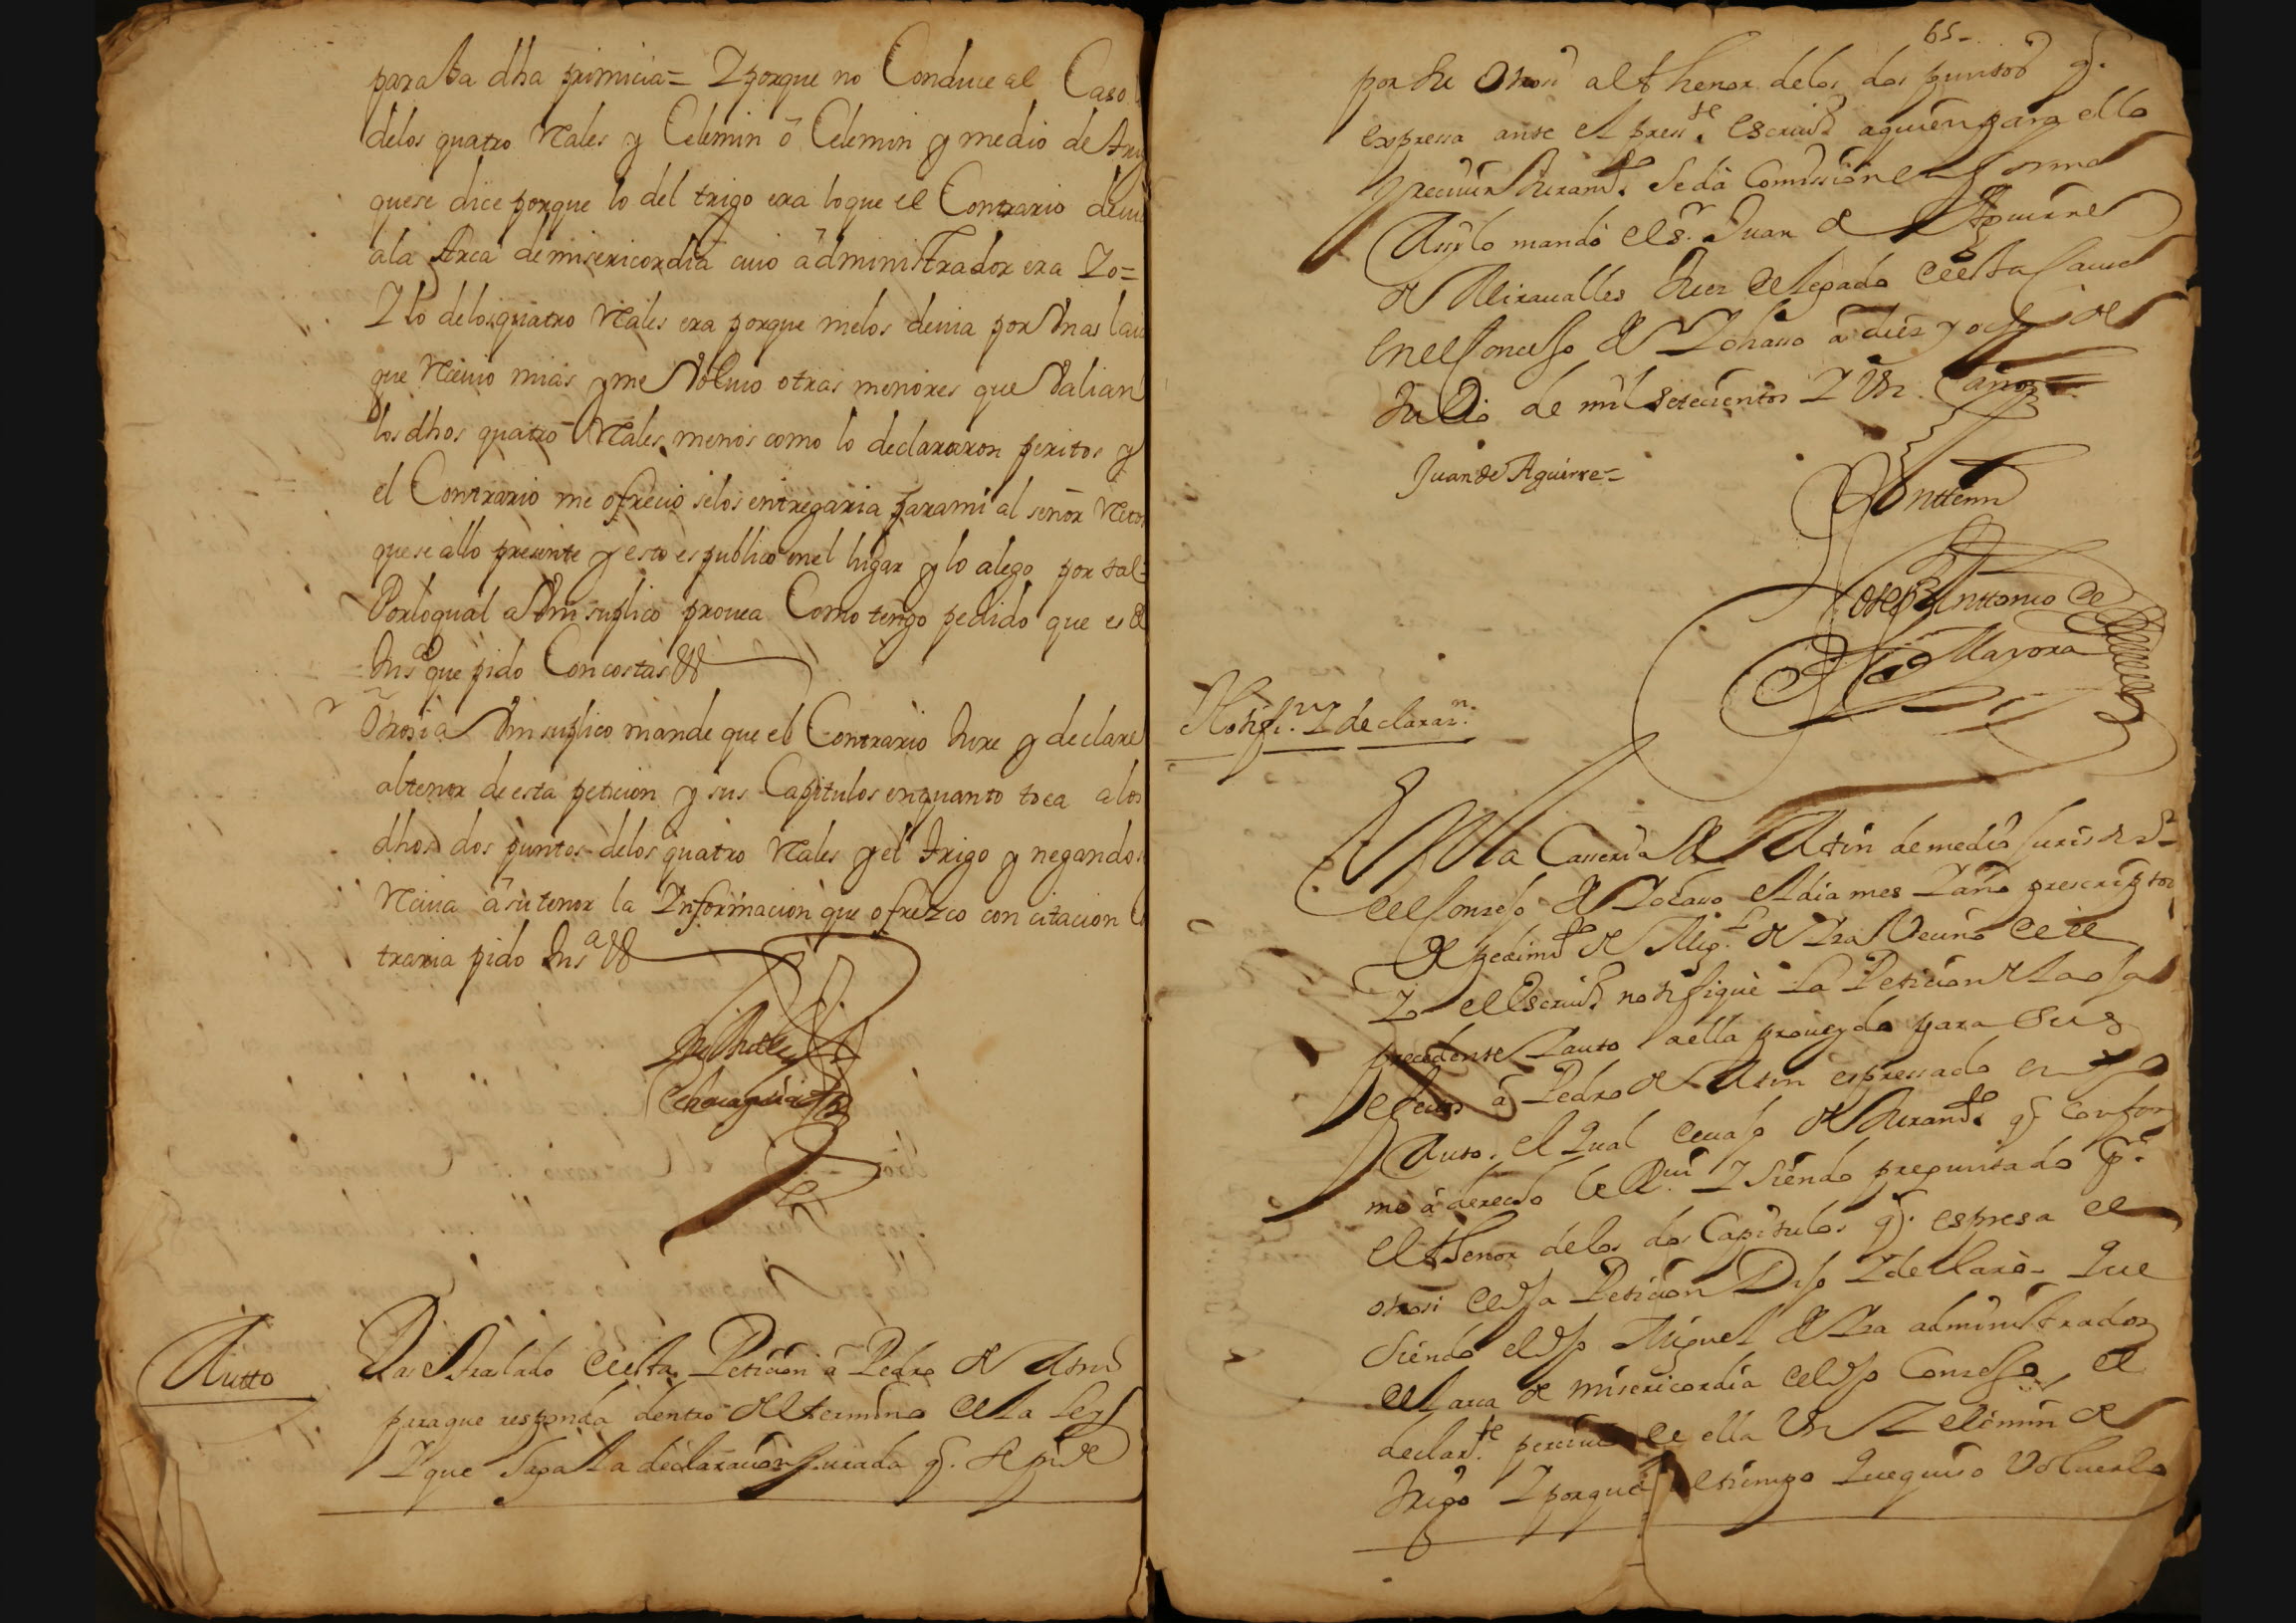 para ta dha primicia = Y porque no Conduce al Caso
delos quatro Rales y Celemin ō Celemin y medio de
quese dice porque lo del trigo era loque el Contrario
ala Arca de misericordia cuio administrador era Yo =
Y lo delos quatro Rales era porque melos devia por Vnas
que Reciuio mias y me Voluio otras menores que Valian
los dhos quatro Rales menos como lo declararon peritos y
el Contrario me ofrecio selos entregaria parami al señor
quese allo presente y esto es publico enel lugar y lo alego por tal =
Porloqual a Vm suplico prouea Como tengo pedido que es
Jusᵃ que pido Con costas &
Otrosi a Vm suplico mande que el Contrario Jure y declare
altenor de esta peticion y sus Capitulos enquanto toca a los
dhos dos puntos delos quatro Rales y el trigo y negando
Reciua â su tenor la Informacion que ofrezco con citacion
traria pido Jusᵃ &
Autto
Das traslado desta Peticion â Pedro de
paraque responda dentro del termino de la ley
Y que haga la declaracion jurada q. se pide
65-
por su Otrosi al thenor delos dos puntos q.
expressa ante el presᵗᵉ escriuᵒ aquien para ello
y reciuir Juramᵗᵒ se da Comission en forma
Assi lo mando el Sʳ. Juan de Aguirre
de Miraualles Juez delegado desta causa
en el Conçejo de a diez y ocho de
Julio de mil setecientos Y Vn años
Juan de Aguirre =
Antemi
Joseph Anttonio de
Mayora
Notifⁿ. Y declaraⁿ.
En la Casseria de de medio
del Conzejo de el dia mes Y año prescriptos
de pedimᵗᵒ de Migˡ de Veçino de el
Yo el Escriuᵒ notifiqué la Peticion de la oja
precedente Y auto a ella proueydo para sus
efectos â Pedro de expressado en dho
Auto, el qual deuajo de Juramᵗᵒ q confor
me â derecho le Y siendo preguntado pʳ
el thenor delos dos Capitulos q. espresa el
otrosi de dha Peticion Dijo Y declarò - Que
siendo el dho Miguel de administrador
del arca de misericordia del dho Conzejo, el
declarᵗᵉ de ella Vn Zelemin de
trigo Y porque al tiempo que quiso Voluerlo